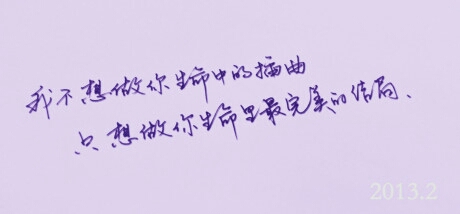 我不想做你生命中的插曲
只想做你生命里最完美的结局、
2013.2